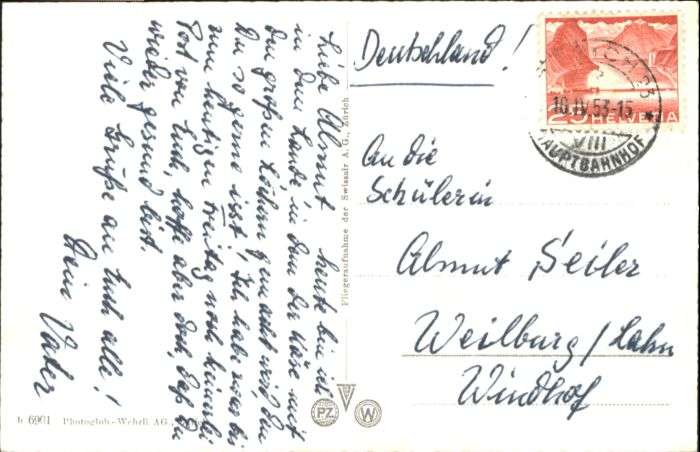 Liebe Almut, heute bin ich
in dem Lande, in dem der Käse mit
den großen Löchern gemacht wird, den
Du so gerne isst! Ich habe zwar bis
zum heutigen Freitag noch keinerlei
Post von Euch, hoffe aber doch, daß Du
wieder gesund bist.
Viele Grüße an Euch alle!
Dein Vater
Fliegeraufnahme der Swissair A. G., Zürich
Deutschland!
An die
Schülerin
Almut Seiler
Weilburg/Lahn
Windhof
ZÜRICH 23
10.IV.53-15
VIII
HAUPTBAHNHOF
25 HELVETIA
PZ
W
b 6961 Photoglob-Wehrli AG.